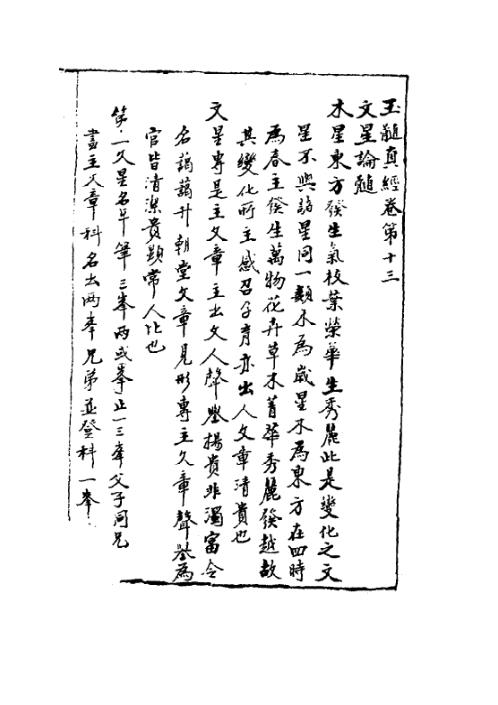 玉髓真經卷第十三
文星論髓
木星東方發生氣枝葉榮華生秀麗此是變化之文
星不與諸星同一類木為歲星木為東方在四時
為春主發生萬物花卉草木菁華秀麗發越故
其變化所主感召孕育亦出人文章清貴也
文星專是主文章主出文人聲譽揚貴非濁富令
名藹藹升朝堂文章見形專主文章聲譽為
官皆清潔貴顯常人比也
第一文星名卓筆三峯兩或峯止一三峯父子同兄
盡主文章科名出两峯兄弟並登科一峯